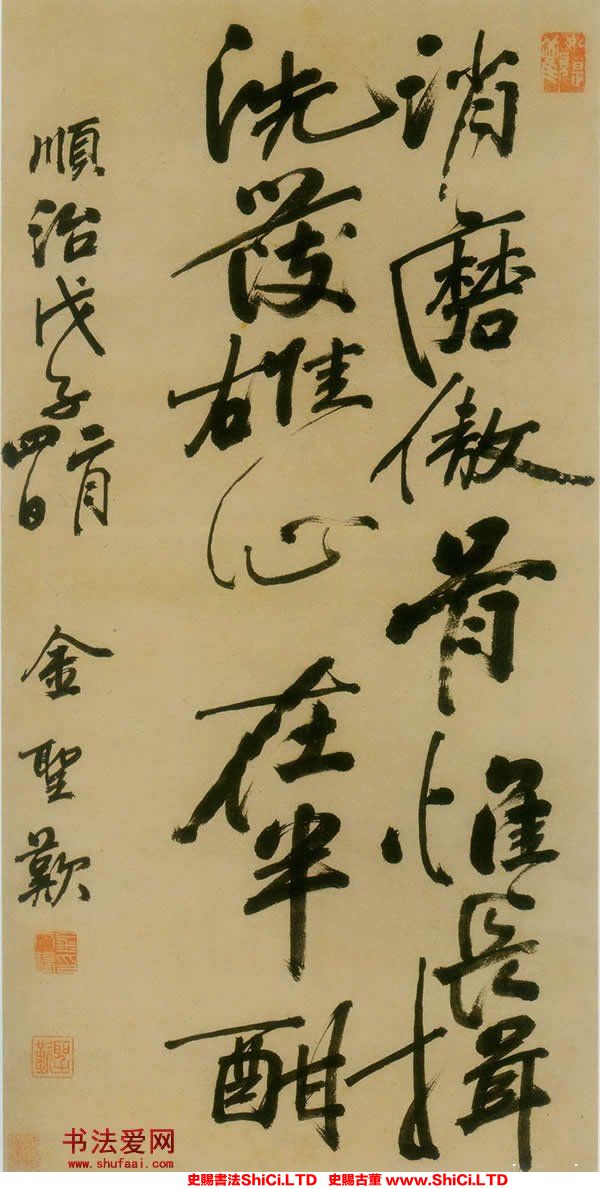 消磨傲骨惟長揖
洗發雄心在半酣
順治戊子二月四日 金聖歎
聖歎
书法爱网
www.shufaai.com
史賜書法ShiCi.LTD 史賜古董 www.ShiCi.LTD